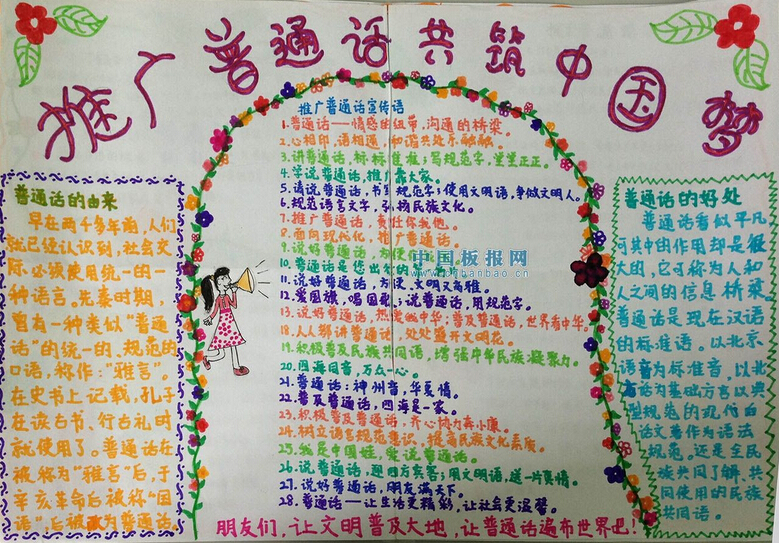 推广普通话共筑中国梦
普通话的由来
早在两千多年前,人们
就已经认识到,社会交
际必须使用统一的一
种语言。先秦时期,
曾有一种类似“普通
话”的统一的、规范的
口语,称作:“雅言”。
在史书上记载,孔子
在读古书、行古礼时
就使用了。普通话在
被称为“雅言”后,于
辛亥革命后被称“国
语”,后被改为普通话。
推广普通话宣传语
1.普通话——情感的纽带,沟通的桥梁。
2.心相印,语相通,和谐共处乐融融。
3.讲普通话,标标准准;写规范字,堂堂正正。
4.学说普通话,推广靠大家。
5.请说普通话,书写规范字;使用文明语,争做文明人。
6.规范语言文字,弘扬民族文化。
7.推广普通话,责任你我他。
8.面向现代化,推广普通话
9.说好普通话,方便
10.普通话是您出
11.说好普通话,方便,文明又高雅。
12.爱国旗,唱国歌;说普通话,用规范字。
13.说好普通话,热爱我中华;普及普通话,世界看中华。
18.人人都讲普通话,处处盛开文明花。
19.积极普及民族共同语,增强中华民族凝聚力。
20.四海同音,万众一心。
21.普通话:神州音,华夏情。
22.普及普通话,四海是一家。
23.积极普及普通话,齐心协力奔小康。
24.树立语言规范意识,提高民族文化素质。
25.我是中国娃,爱说普通话。
26.说普通话,迎四方宾客;用文明语,送一片真情。
27.说好普通话,朋友满天下。
28.普通话——让生活更精彩,让社会更温馨。
朋友们,让文明普及大地,让普通话遍布世界吧!
普通话的好处
普通话看似平凡
可其中的作用却是很
大的,它可称为人和
人之间的信息桥梁。
普通话是现在汉语
的标准语。以北京
语音为标准音,以北
方话为基础方言以典
型规范的现代白
话文著作为语法
规范。还是全民
族共同了解、共
同使用的民族
共同语。
中国板报网
www.cnbanbao.cn